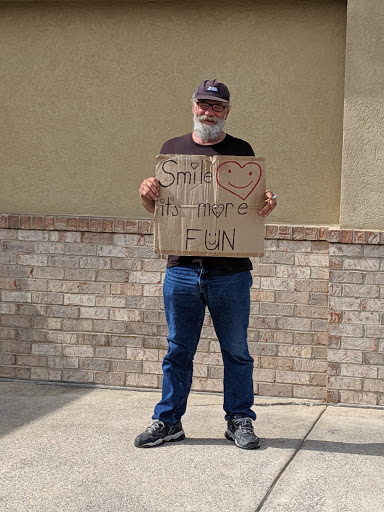 Smile
its more
FUN